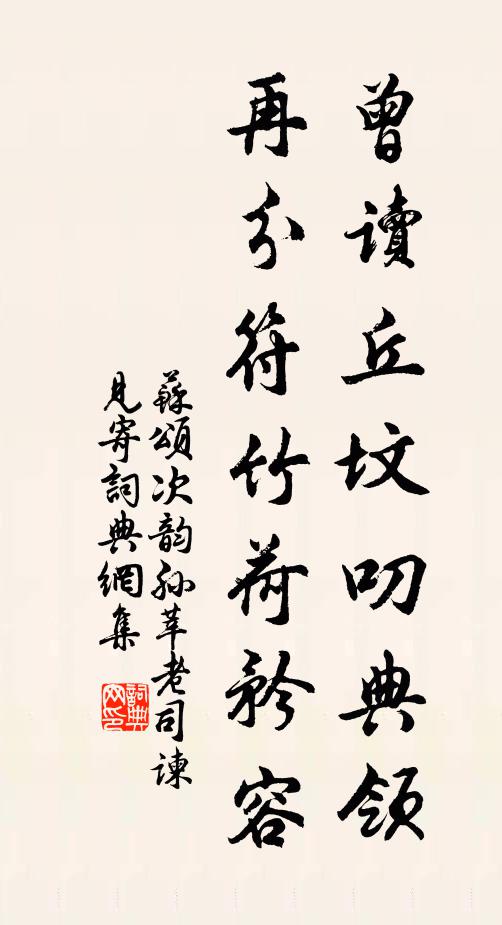 曾讀丘墳叨典領
再分符竹荷矜容
蘇頌次韵孫莘老司諫
見寄詞典網集
詞典
网印